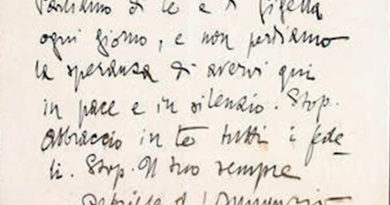 Parliamo di te e di Gigetta
ogni giorno, e non perdiamo
la speranza di avervi qui
in pace e in silenzio. Stop.
Abbraccio in te tutti i fede-
li. Stop. Il tuo sempre
Gabriele d'Annunzio